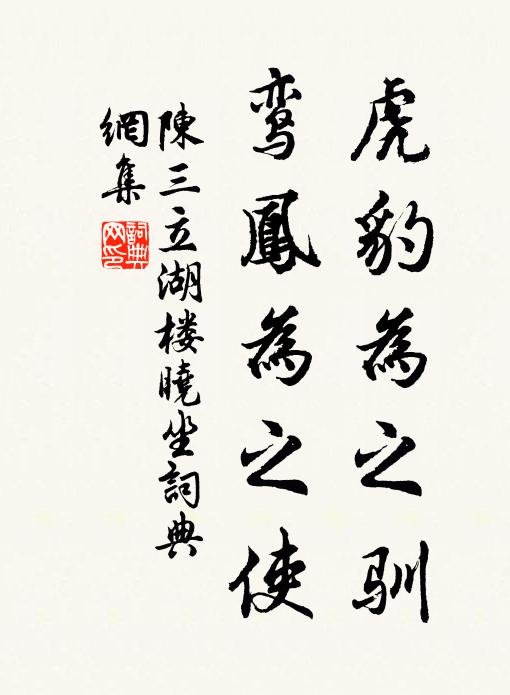 虎豹為之驯
鸾鳳為之使
陳三立湖楼曉坐詞典
網集
詞典
网印